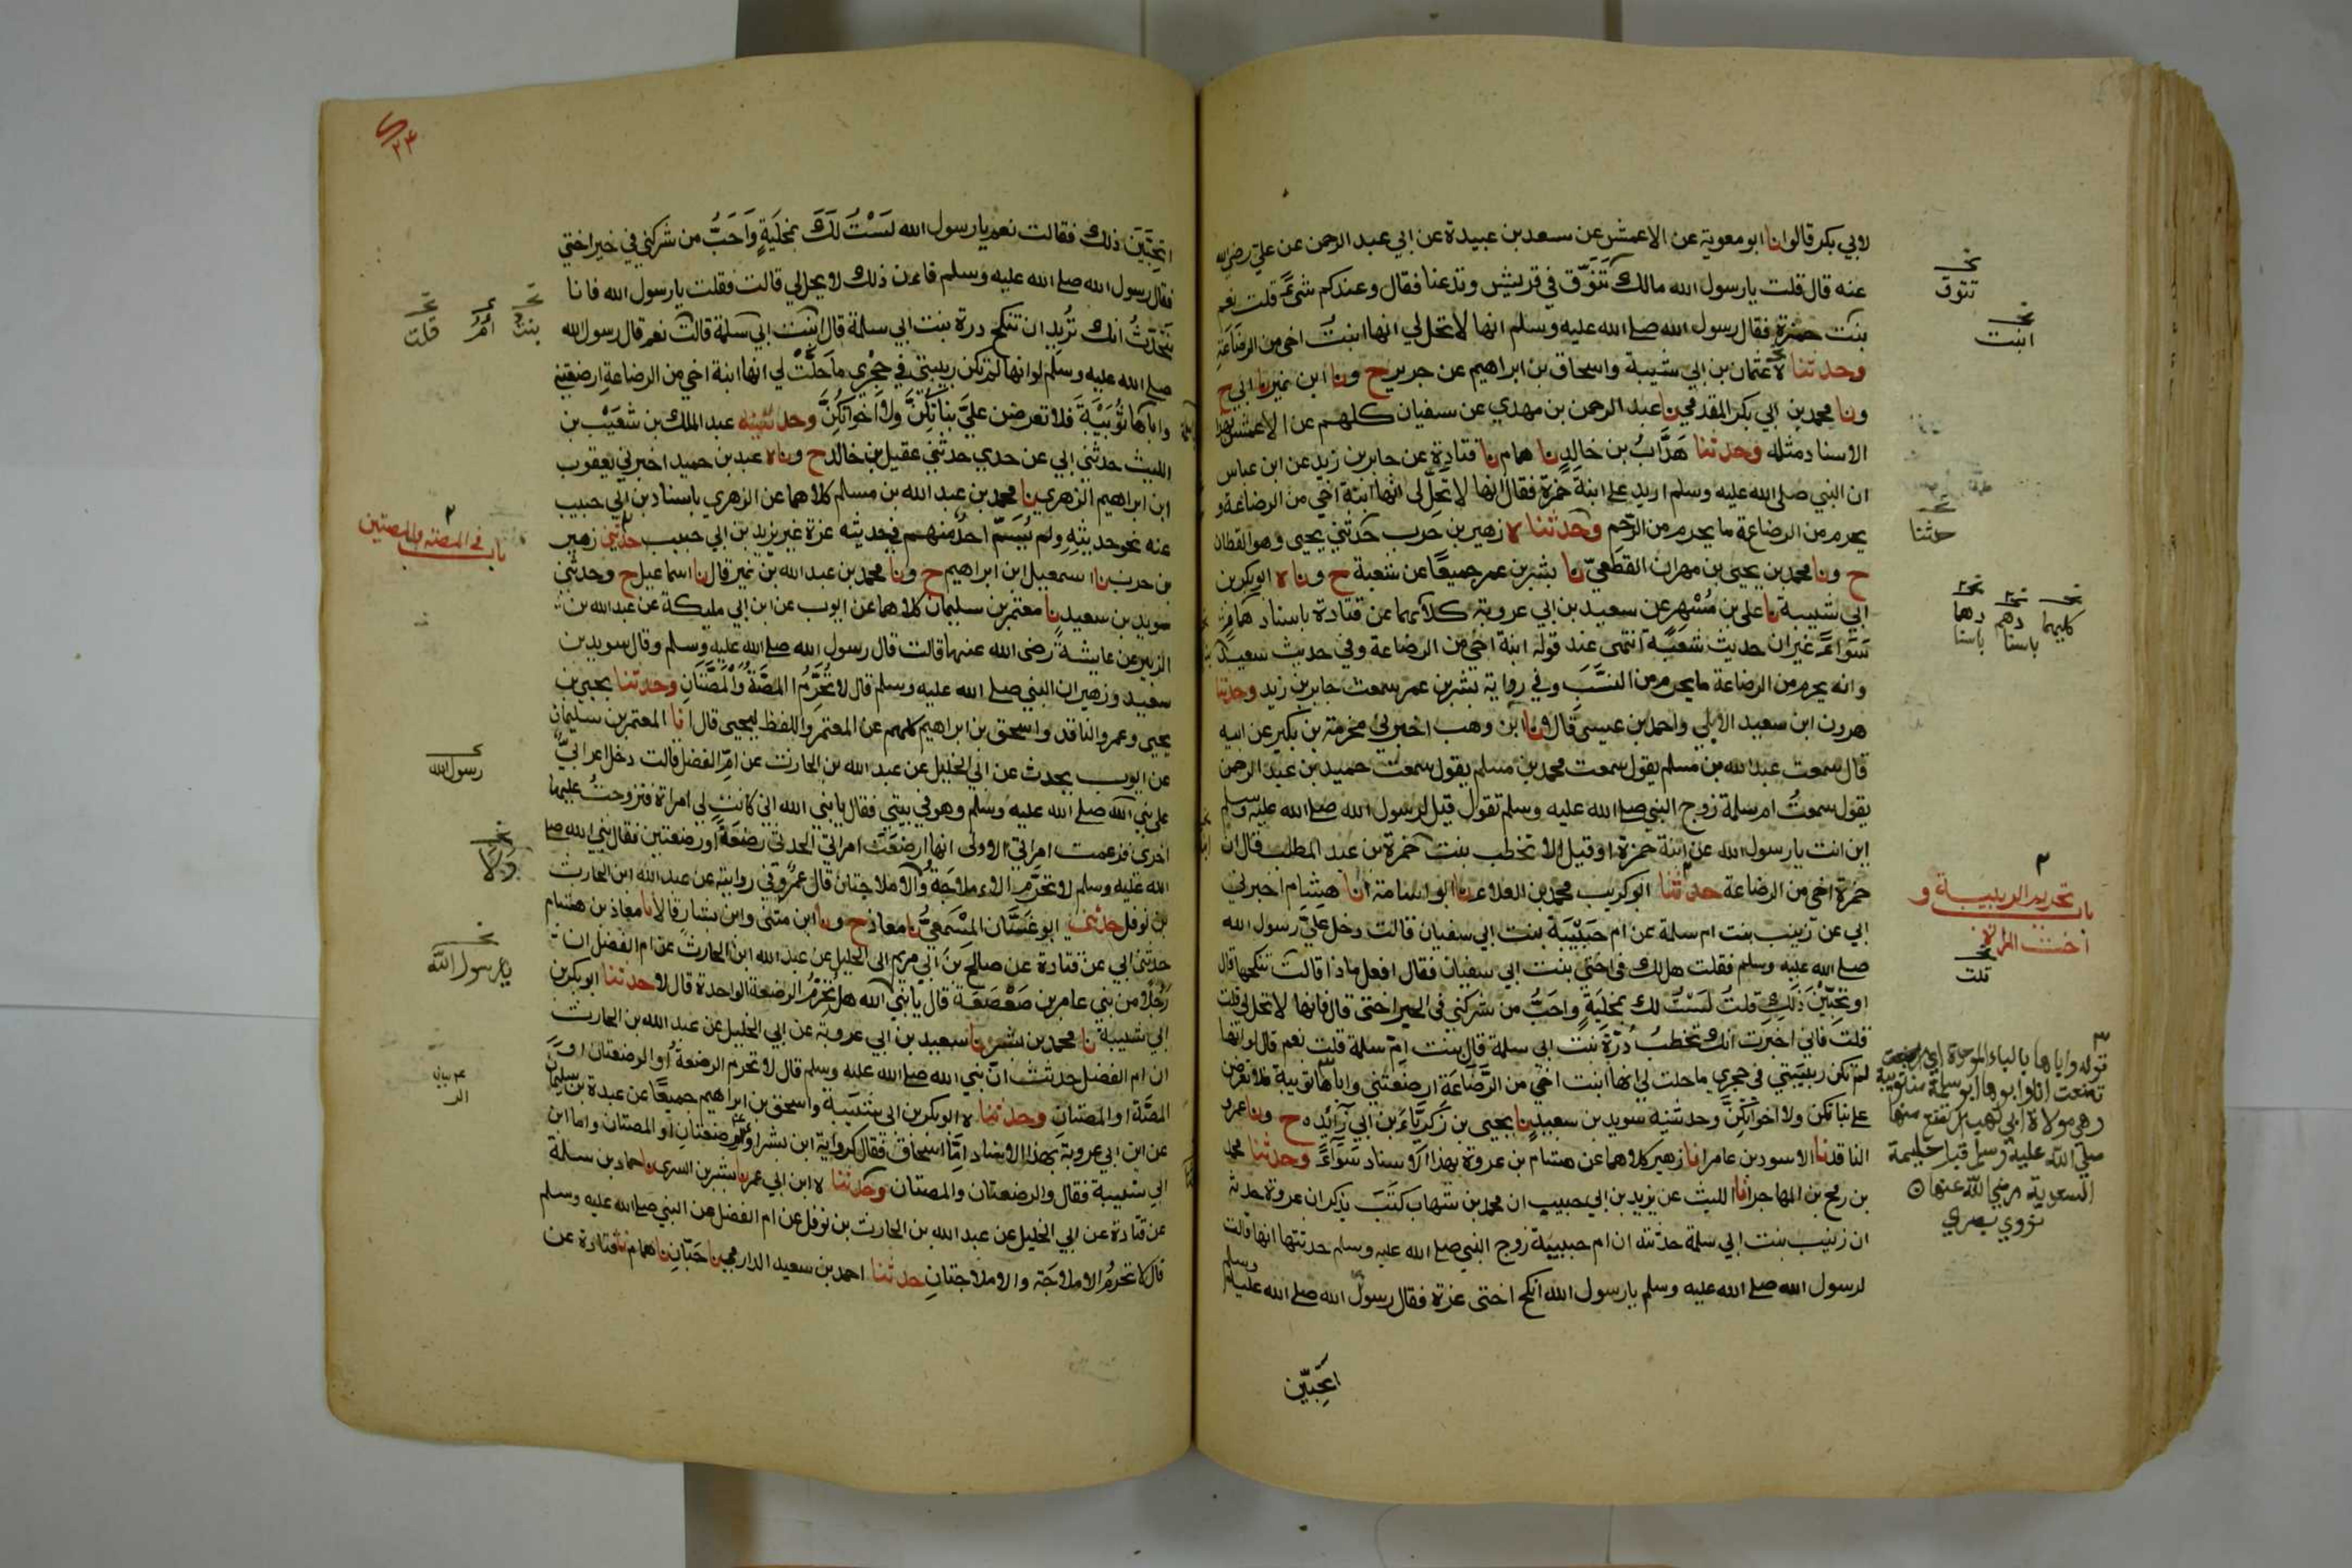 لابي بكر قالوا انا ابو معوية عن الاعمش عن سعد بن عبيدة عن ابي عبد الرحمن عن علي رضي الله
عنه قال قلت يا رسول الله مالك تتوق في قريش وتدعنا فقال وعندكم شئ قلت نعم
بنت حمزة فقال رسول الله صلى الله عليه وسلم انها لا تحل لي انها ابنت اخي من الرضاعة
وحدثنا عثمان بن ابي شيبة واسحاق بن ابراهيم عن جرير ح ونا ابن نمير نا ابي ح
ونا محمد بن ابي بكر المقدمي نا عبد الرحمن بن مهدي عن سفيان كلهم عن الاعمش بهذا
الاسناد مثله وحدثنا هداب بن خالد نا همام نا قتادة عن جابر بن زيد عن ابن عباس
ان النبي صلى الله عليه وسلم اريد على ابنة حمزة فقال انها لا تحل لي انها ابنة اخي من الرضاعة و
يحرم من الرضاعة ما يحرم من الرحم وحدثنا ه زهير بن حرب حدثني يحيى وهو القطان
ح ونا محمد بن يحيى بن مهران القطعي نا بشر بن عمر جميعا عن شعبة ح ونا ه ابو بكر بن
ابي شيبة نا علي بن مسهر عن سعيد بن ابي عروبة كلاهما عن قتادة باسناد همام
سواء غير ان حديث شعبة انتهى عند قوله ابنة اخي من الرضاعة وفي حديث سعيد
وانه يحرم من الرضاعة ما يحرم من النسب وفي رواية بشر بن عمر سمعت جابر بن زيد وحدثنا
هرون ابن سعيد الايلي واحمد بن عيسى قالا نا ابن وهب اخبرني مخرمة بن بكير عن ابيه
قال سمعت عبد الله بن مسلم يقول سمعت محمد بن مسلم يقول سمعت حميد بن عبد الرحمن
يقول سمعت ام سلمة زوج النبي صلى الله عليه وسلم تقول قيل لرسول الله صلى الله عليه وسلم
اين انت يا رسول الله عن ابنة حمزة او قيل الا تخطب بنت حمزة بن عبد المطلب قال ان
حمزة اخي من الرضاعة حدثنا ابو كريب محمد بن العلاء نا ابو اسامة انا هشام اخبرني
ابي عن زينب بنت ام سلمة عن ام حبيبة بنت ابي سفيان قالت دخل علي رسول الله
صلى الله عليه وسلم فقلت هل لك في اختي بنت ابي سفيان فقال افعل ماذا قالت تنكحها قال
او تحبين ذلك قلت لست لك بمخلية واحب من شركني في الخير اختي قال فانها لا تحل لي قلت
قلت فاني اخبرت انك تخطب درة بنت ابي سلمة قال بنت ام سلمة قلت نعم قال لو انها
لم تكن ربيبتي في حجري ما حلت لي انها ابنت اخي من الرضاعة ارضعتني واباها ثويبة فلا تعرضن
علي بناتكن ولا اخواتكن وحدثنيه سويد بن سعيد نا يحيى بن زكرياء بن ابي زائدة ح ونا عمرو
الناقد نا الاسود بن عامر انا زهير كلاهما عن هشام بن عروة بهذا الاسناد سواء وحدثنا محمد
بن رمح بن المهاجر انا الليث عن يزيد بن ابي حبيب ان محمد بن شهاب كتب يذكر ان عروة حدثه
ان زينب بنت ابي سلمة حدثته ان ام حبيبة زوج النبي صلى الله عليه وسلم حدثتها انها قالت
لرسول الله صلى الله عليه وسلم يا رسول الله انكح اختي عزة فقال رسول الله صلى الله عليه وسلم
اتحبين
تتوق
ابنت
حدثنا
كليهما
باب تحريم الربيبة و
اخت المراة
قلت
قوله واباها بالباء الموحدة اي
ارضعت انا وابوها ابو سلمة من ثويبة
وهي مولاة ابي لهب ارتضع منها
صلى الله عليه وسلم قبل حليمة
السعدية رضي الله عنها
نووي
٢٣
اتحبين ذلك فقالت نعم يا رسول الله لست لك بمخلية واحب من شركني في خير اختي
فقال رسول الله صلى الله عليه وسلم فان ذلك لا يحل لي قالت فقلت يا رسول الله فانا
نتحدث انك تريد ان تنكح درة بنت ابي سلمة قال ابنت ابي سلمة قالت نعم قال رسول الله
صلى الله عليه وسلم لو انها لم تكن ربيبتي في حجري ما حلت لي انها ابنة اخي من الرضاعة ارضعتني
واباها ثويبة فلا تعرضن علي بناتكن ولا اخواتكن وحدثنيه عبد الملك بن شعيب بن
الليث حدثني ابي عن جدي حدثني عقيل بن خالد ح ونا ه عبد بن حميد اخبرني يعقوب
ابن ابراهيم الزهري نا محمد بن عبد الله بن مسلم كلاهما عن الزهري باسناد بن ابي حبيب
عنه نحو حديثه ولم يسم احد منهم في حديثه عزة غير يزيد بن ابي حبيب حدثني زهير
بن حرب نا اسمعيل ابن ابراهيم ح ونا محمد بن عبد الله بن نمير قال نا اسماعيل ح وحدثني
سويد بن سعيد نا معتمر بن سليمان كلاهما عن ايوب عن ابن ابي مليكة عن عبد الله بن
الزبير عن عايشة رضى الله عنها قالت قال رسول الله صلى الله عليه وسلم وقال سويد بن
سعيد وزهير ان النبي صلى الله عليه وسلم قال لا تحرم المصة والمصتان وحدثنا يحيى بن
يحيى وعمرو الناقد واسحق بن ابراهيم كلهم عن المعتمر واللفظ ليحيى قال انا المعتمر بن سليمان
عن ايوب يحدث عن ابي الخليل عن عبد الله بن الحارث عن ام الفضل قالت دخل اعرابي
على نبي الله صلى الله عليه وسلم وهو في بيتي فقال يا نبي الله اني كانت لي امراة فتزوجت عليها
اخرى فزعمت امراتي الاولى انها ارضعت امراتي الحدثى رضعة او رضعتين فقال نبي الله صلى
الله عليه وسلم لا تحرم الاملاجة والاملاجتان قال عمرو في روايته عن عبد الله ابن الحارث
بن نوفل حدثني ابو غسان المسمعي نا معاذ ح ونا ابن مثنى وابن بشار قالا نا معاذ بن هشام
حدثني ابي عن قتادة عن صالح بن ابي مريم ابي الخليل عن عبد الله ابن الحارث عن ام الفضل ان
رجلا من بني عامر بن صعصعة قال يا نبي الله هل تحرم الرضعة الواحدة قال لا حدثنا ابو بكر بن
ابي شيبة نا محمد بن بشر نا سعيد بن ابي عروبة عن ابي الخليل عن عبد الله بن الحارث
ان ام الفضل حدثت ان نبي الله صلى الله عليه وسلم قال لا تحرم الرضعة او الرضعتان او
المصة او المصتان وحدثنا ه ابو بكر بن ابي شيبة واسحق بن ابراهيم جميعا عن عبدة بن سليمان
عن ابن ابي عروبة بهذا الاسناد اما اسحاق فقال كرواية ابن بشر او الرضعتان او المصتان واما ابن
ابي شيبة فقال والرضعتان والمصتان وحدثنا ه ابن ابي عمر نا بشر بن السري نا حماد بن سلمة
عن قتادة عن ابي الخليل عن عبد الله بن الحارث بن نوفل عن ام الفضل عن النبي صلى الله عليه وسلم
قال لا تحرم الاملاجة والاملاجتان حدثنا احمد بن سعيد الدارمي نا حبان نا همام نا قتادة عن
بنت
ام
قلت
باب في المصة والمصتين
رسول الله
ولا
يا رسول الله